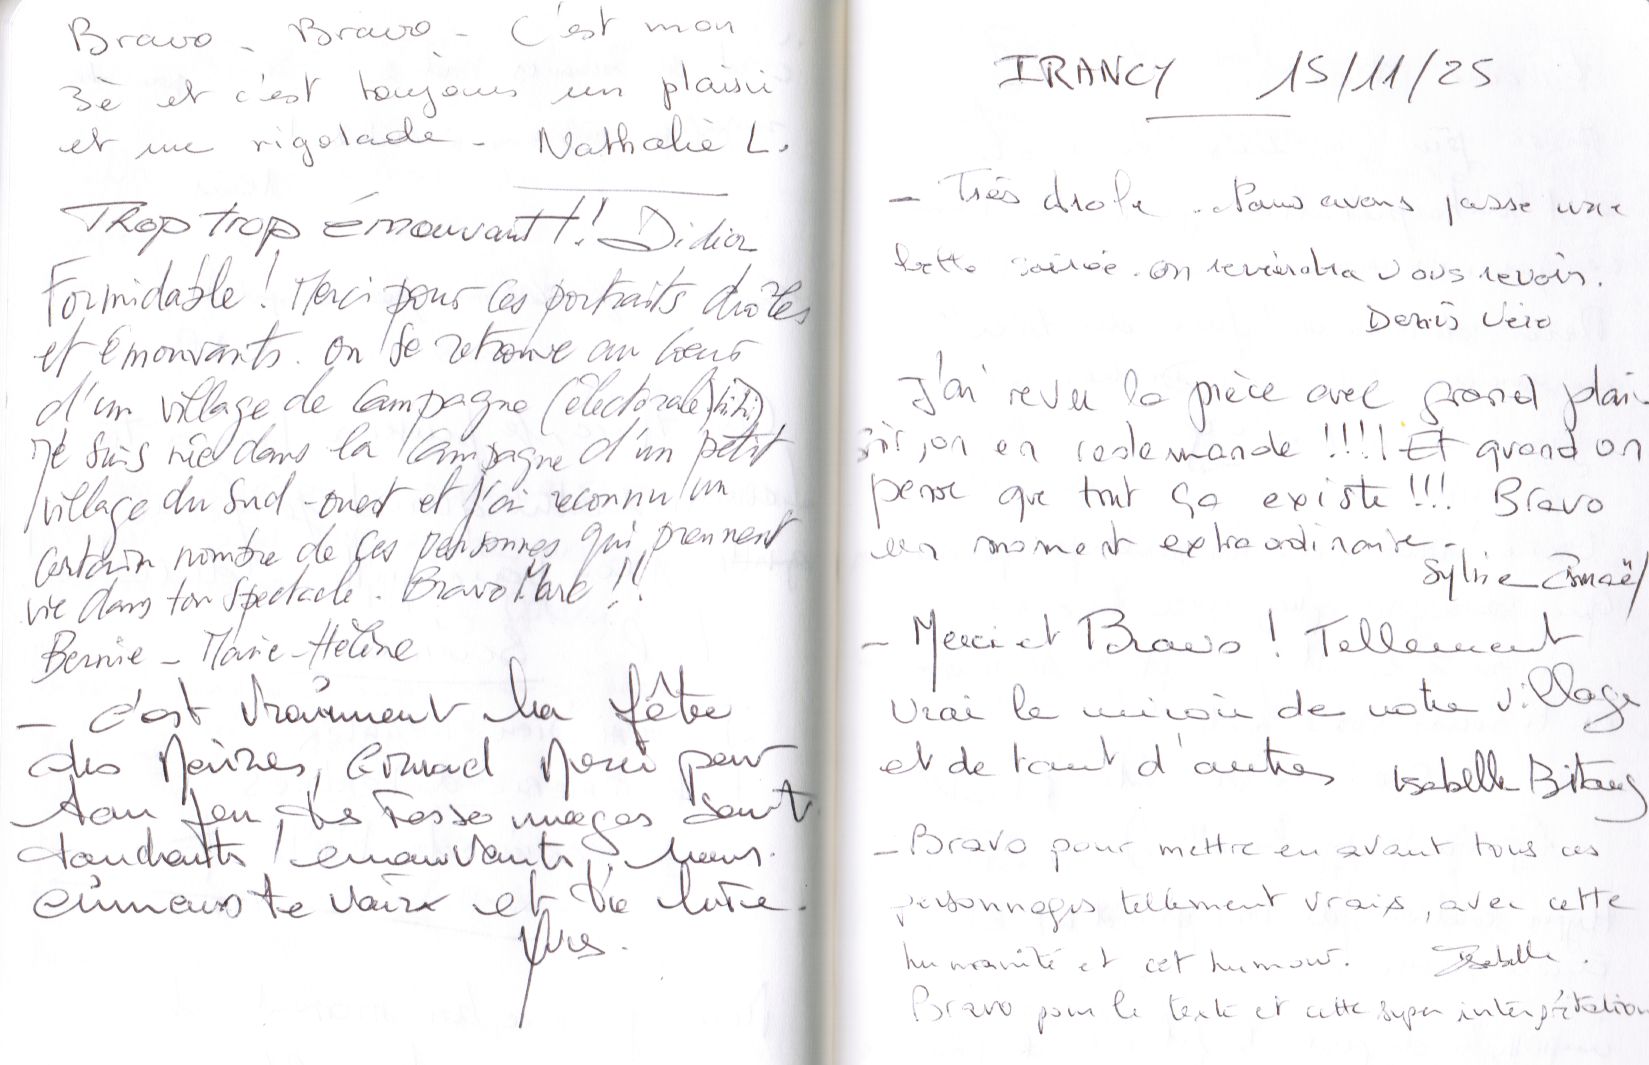 Bravo - Bravo - C'est mon
3è et c'est toujours un plaisir
et une rigolade - Nathalie L.
Trop trop émouvant! Didier
Formidable ! Merci pour ces portraits drôles
et émouvants. On se retrouve au coeur
d'un village de campagne (électorale) hihi)
Je suis née dans la campagne d'un petit
village du Sud-ouest et j'ai reconnu un
certain nombre de ces personnes qui prennent
vie dans ton spectacle. Bravo Marc !!
Bernie - Marie-Hélène
- C'est vraiment la fête
des Maires, Grand Merci pour
ton jeu, tes Personnages sont
touchants, émouvants, nous
aimons te voir et te lire.
Yves.
IRANCY 15/11/25
- Très drole. Nous avons passe une
belle soirée. on reviendra vous revoir.
Denis
J'ai revu la pièce avec grand plai-
sir, on en redemande !!!! Et quand on
pense que tout ça existe !!! Bravo
un moment extraordinaire -
Sylvie
- Merci et Bravo ! Tellement
vrai le miroir de notre village
et de tant d'autres Isabelle
- Bravo pour mettre en avant tous ces
personnages tellement vrais, avec cette
humanité et cet humour. Isabelle.
Bravo pour le texte et cette super interprétation